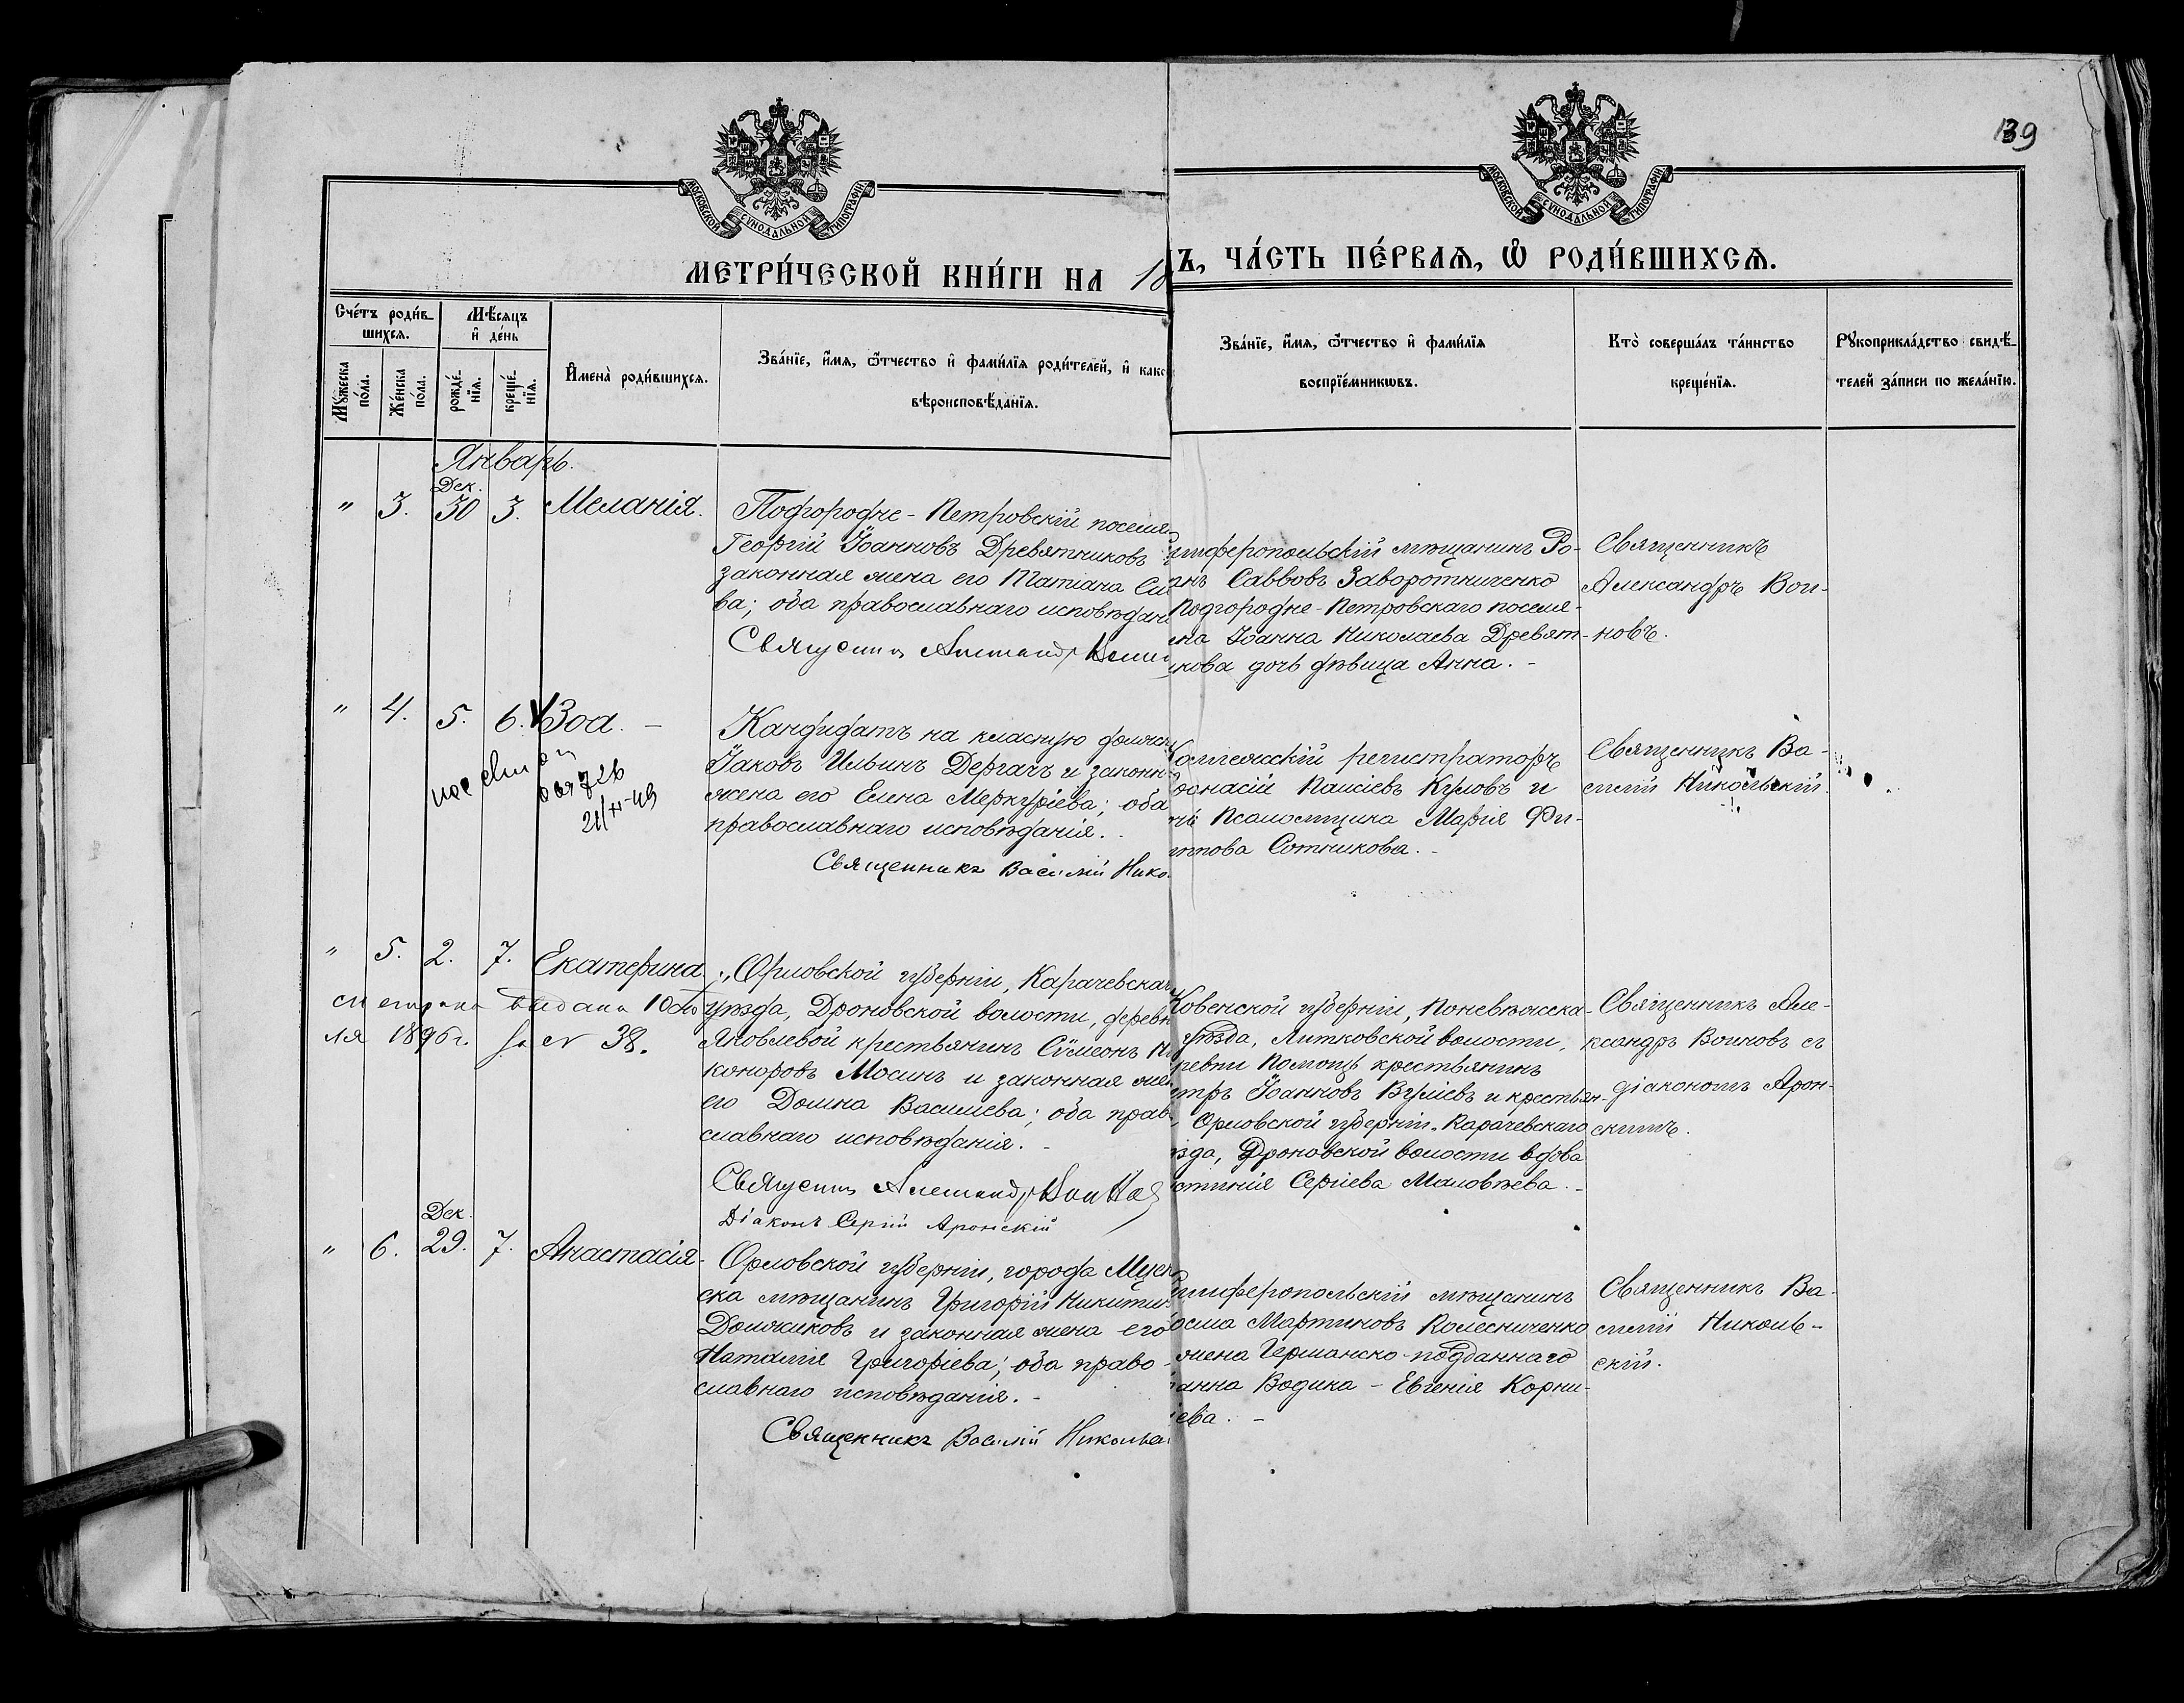 139
МОСКОВСКОЙ СѴНОДАЛЬНОЙ ТИПОГРАФІИ
МОСКОВСКОЙ СѴНОДАЛЬНОЙ ТИПОГРАФІИ
МЕТРИ́ЧЕСКОЙ КНИ́ГИ НА 18
Ъ, ЧА́СТЬ ПЕ́РВАѦ, Ѡ҆ РОДИ́ВШИХСѦ.
Сче́тъ роди́в-
шихсѧ.
Мꙋ́жеска по́ла.
Же́нска по́ла.
Мѣ́сѧцъ
и҆ де́нь
рожде́-нїѧ.
креще́-нїѧ.
И҆мена̀ роди́вшихсѧ.
Зва́нїе, и҆́мѧ, ѻ҆́тчество и҆ фами́лїѧ роди́телей, и҆ како
вѣроисповѣ́данїѧ.
Зва́нїе, и҆́мѧ, ѻ҆́тчество и҆ фами́лїѧ
воспрїе́мникѡвъ.
Кто̀ соверша́лъ та́инство
креще́нїѧ.
Рꙋкоприкла́дство свидѣ́-
телей за́писи по жела́нїю.
Январь.
Дек.
" 3. 30 3. Меланія.
Подгородне-Петровскій поселя
Георгій Іоанновъ Древятниковъ
законная жена его Татіана Си
ва; оба православнаго исповѣдані
Священникъ Александръ
имферопольскій мѣщанинъ Ро-
анъ Саввовъ Заворотниченко
Подгородне-Петровскаго поселя-
ина Іоанна Николаева Древят-
икова дочь дѣвица Анна. -
Священникъ
Александръ Вои-
новъ.
" 4. 5. 6. Зоа. -
21/XI-49
Кандидатъ на класную должн
Іаковъ Ильинъ Дергачъ и законн
жена его Елена Меркуріева; оба
православнаго исповѣданія.
Священникъ Василій Нико
Коллежскій регистраторъ
Паисіевъ Куловъ и
Псаломщика Марія Фи-
иппова Сотникова. -
Священникъ Ва-
силій Никольскій
" 5. 2. 7. Екатерина.
выдана 10
ля 1896 г. за № 38.
Орловской губерніи, Карачевска
уѣзда, Дроновской волости, деревн
Яковлевой крестьянинъ Сѵмеонъ Ни
коноровъ Мосинъ и законная жен
его Домна Василіева; оба прав
славнаго исповѣданія. -
Священникъ Александръ Воиновъ
Діаконъ Сергій Аронскій
Ковенской губерніи, Поневѣжска-
уѣзда, Литковской волости,
ревни Помощь крестьянинъ
етръ Іоанновъ Вуліевъ и крестьян-
Орловской губерніи, Карачевскаго
ѣзда, Дроновской волости вдова
стинія Сергіева Маловѣева. -
Священникъ Але-
ксандръ Воиновъ съ
діакономъ Арон-
скимъ.
Дек.
" 6. 29. 7. Анастасія-
Орловской губерніи, города Мцен
ска мѣщанинъ Григорій Никитин
Должиковъ и законная жена его
Наталія Григоріева; оба право-
славнаго исповѣданія. -
Священникъ Василій Никольск
имферопольскій мѣщанинъ
осма Мартиновъ Колесниченко
жена Германско-подданнаго
анна Водика - Евгенія Корни-
іева. -
Священникъ Ва-
силій Николь-
скій.